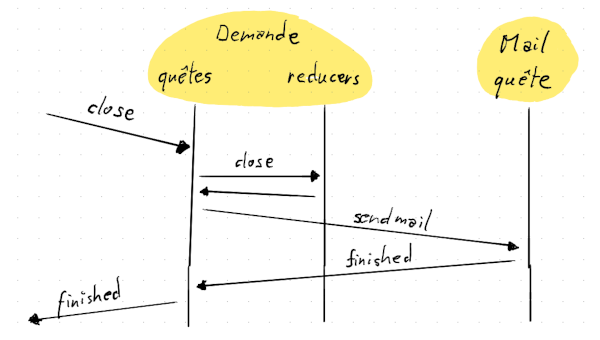 Demande
quêtes reducers
Mail
quête
close
close
sendmail
finished
finished